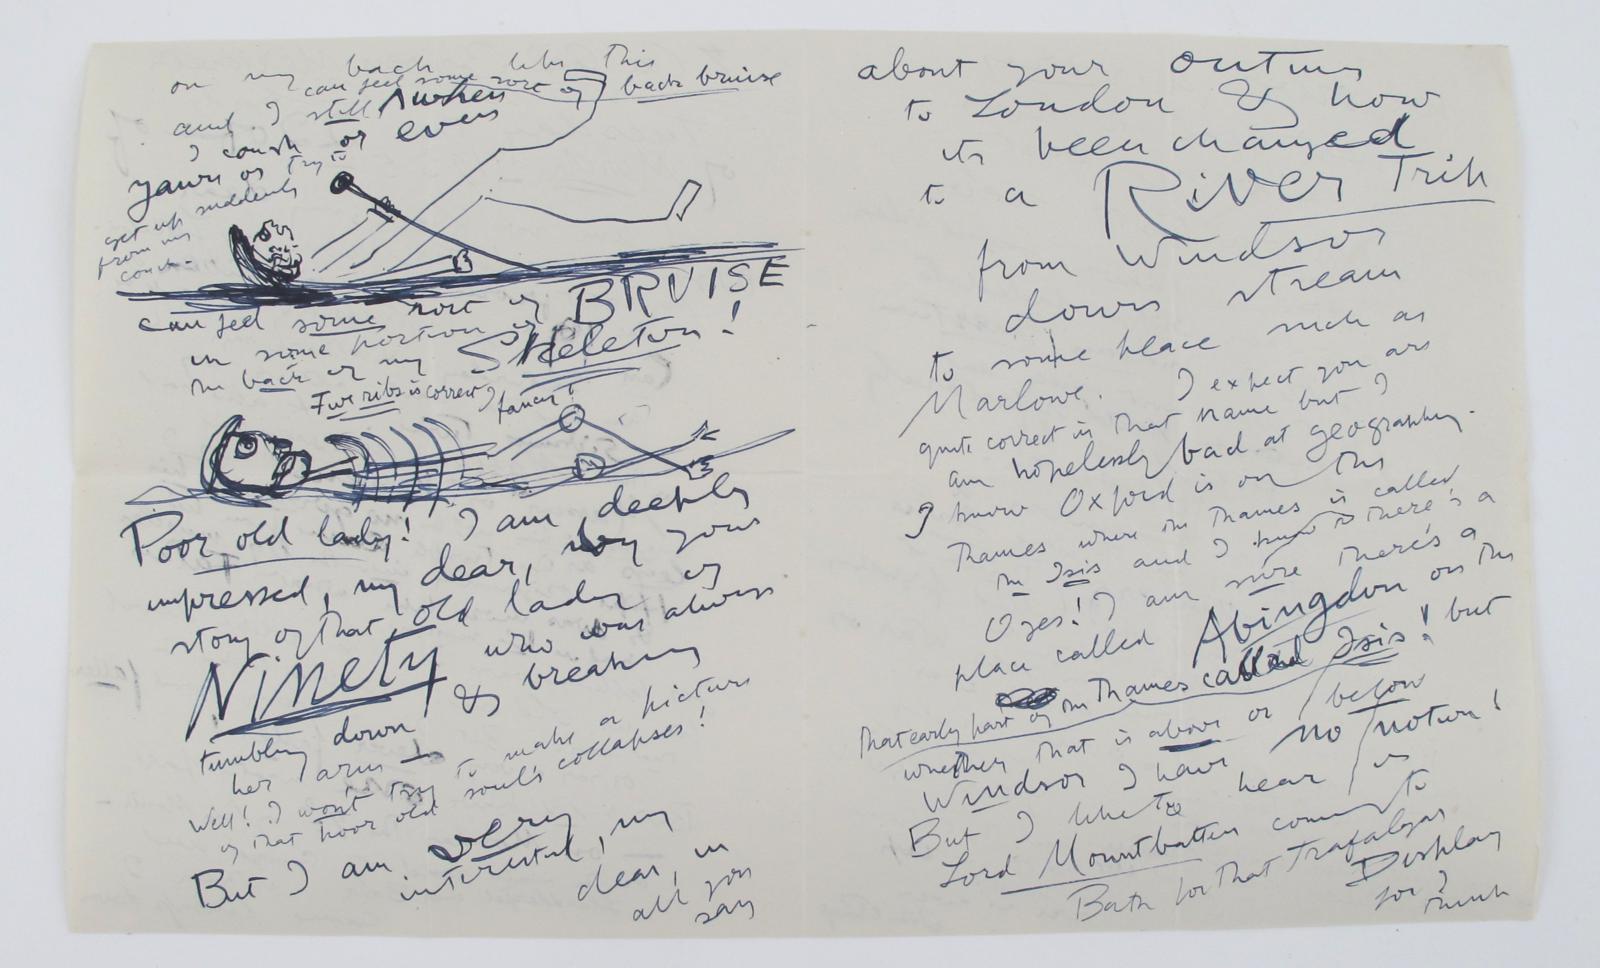 on my back like this
and I still can feel some sort of back bruise
when
I cough or even
yawn or try to
get up suddenly
from my
couch –
can feel some sort of BRUISE
in some portion of
the back of my Skeleton!
Five ribs is correct I fancy!
Poor old lady! I am deeply
impressed, my dear, by your
story of that old lady of
NINETY who was always
tumbling down & breaking
her arms
Well! I won't try to make a picture
of that poor old soul's collapses!
But I am very
interested, my
dear, in
all you
say
about your outing
to London & how
its been changed
to a RIVER Trip
from Windsor
down stream
to some place such as
Marlowe. I expect you are
quite correct in that name but I
am hopelessly bad at geography.
I know Oxford is on the
Thames where the Thames is called
the Isis and I know there's a
O yes! I am sure there's a
place called Abingdon on the
That early part of the Thames called Isis! but
whether that is above or below
Windsor I have no notion!
But I like to hear
Lord Mountbatten is coming to
Bath for that Trafalgar
Display
for I
think